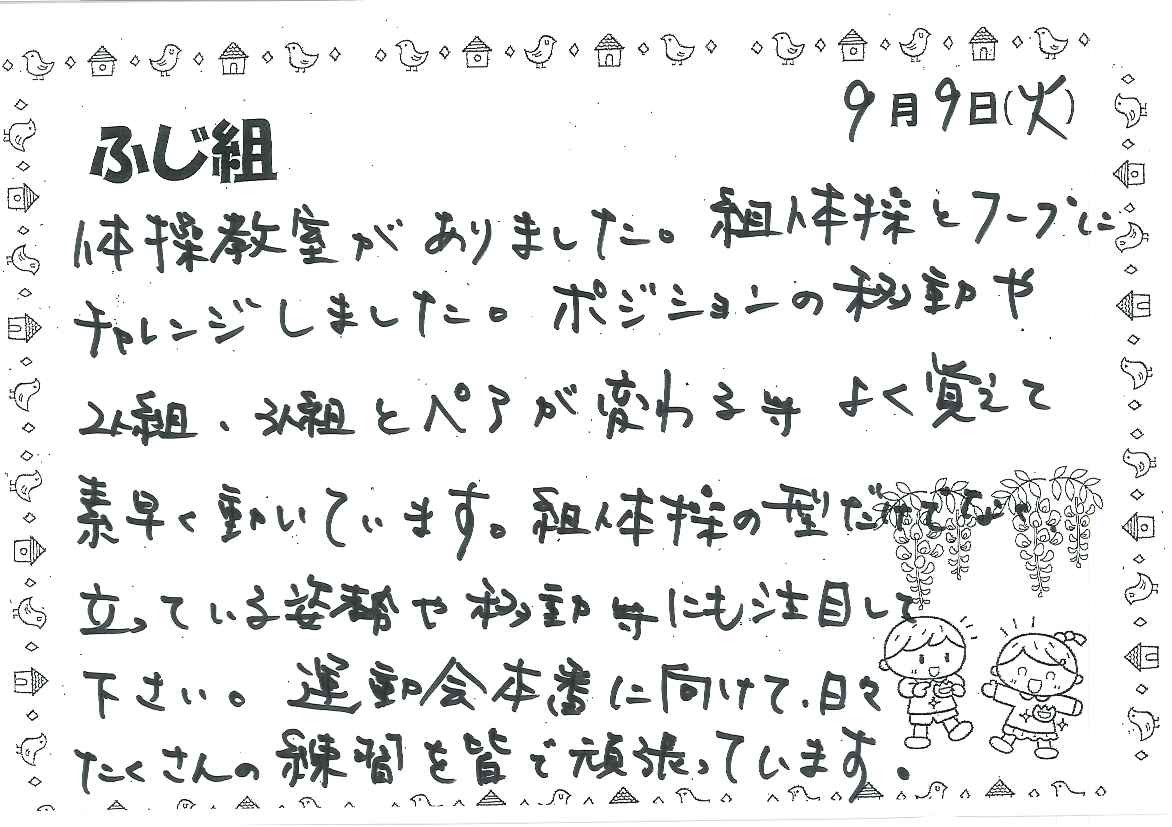 9月9日(火)
ふじ組
体操教室がありました。組体操とフープに
チャレンジしました。ポジションの移動や
2人組、3人組とペアが変わる等よく覚えて
素早く動いています。組体操の型だけでなく、
立っている姿勢や移動等にも注目して
下さい。運動会本番に向けて、日々
たくさんの練習を皆で頑張っています。